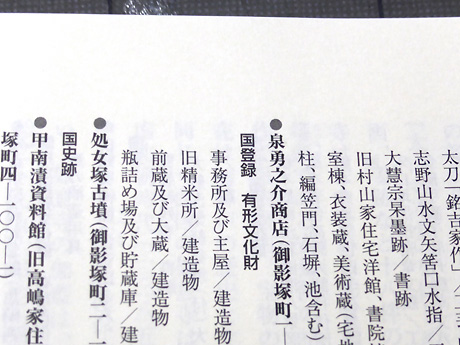 太刀「銘吉家作」
志野山水文矢筈口水指／
大慧宗杲墨跡／書跡
旧村山家住宅洋館、書院
室棟、衣装蔵、美術蔵（宅地
柱、編笠門、石塀、池含む）
●泉勇之介商店（御影塚町二ー
国登録 有形文化財
事務所及び主屋／建造物
旧精米所／建造物
前蔵及び大蔵／建造物
瓶詰め場及び貯蔵庫／建
●処女塚古墳（御影塚町二ー
国史跡
●甲南漬資料館（旧高嶋家住
塚町四ー一〇〇ー一）